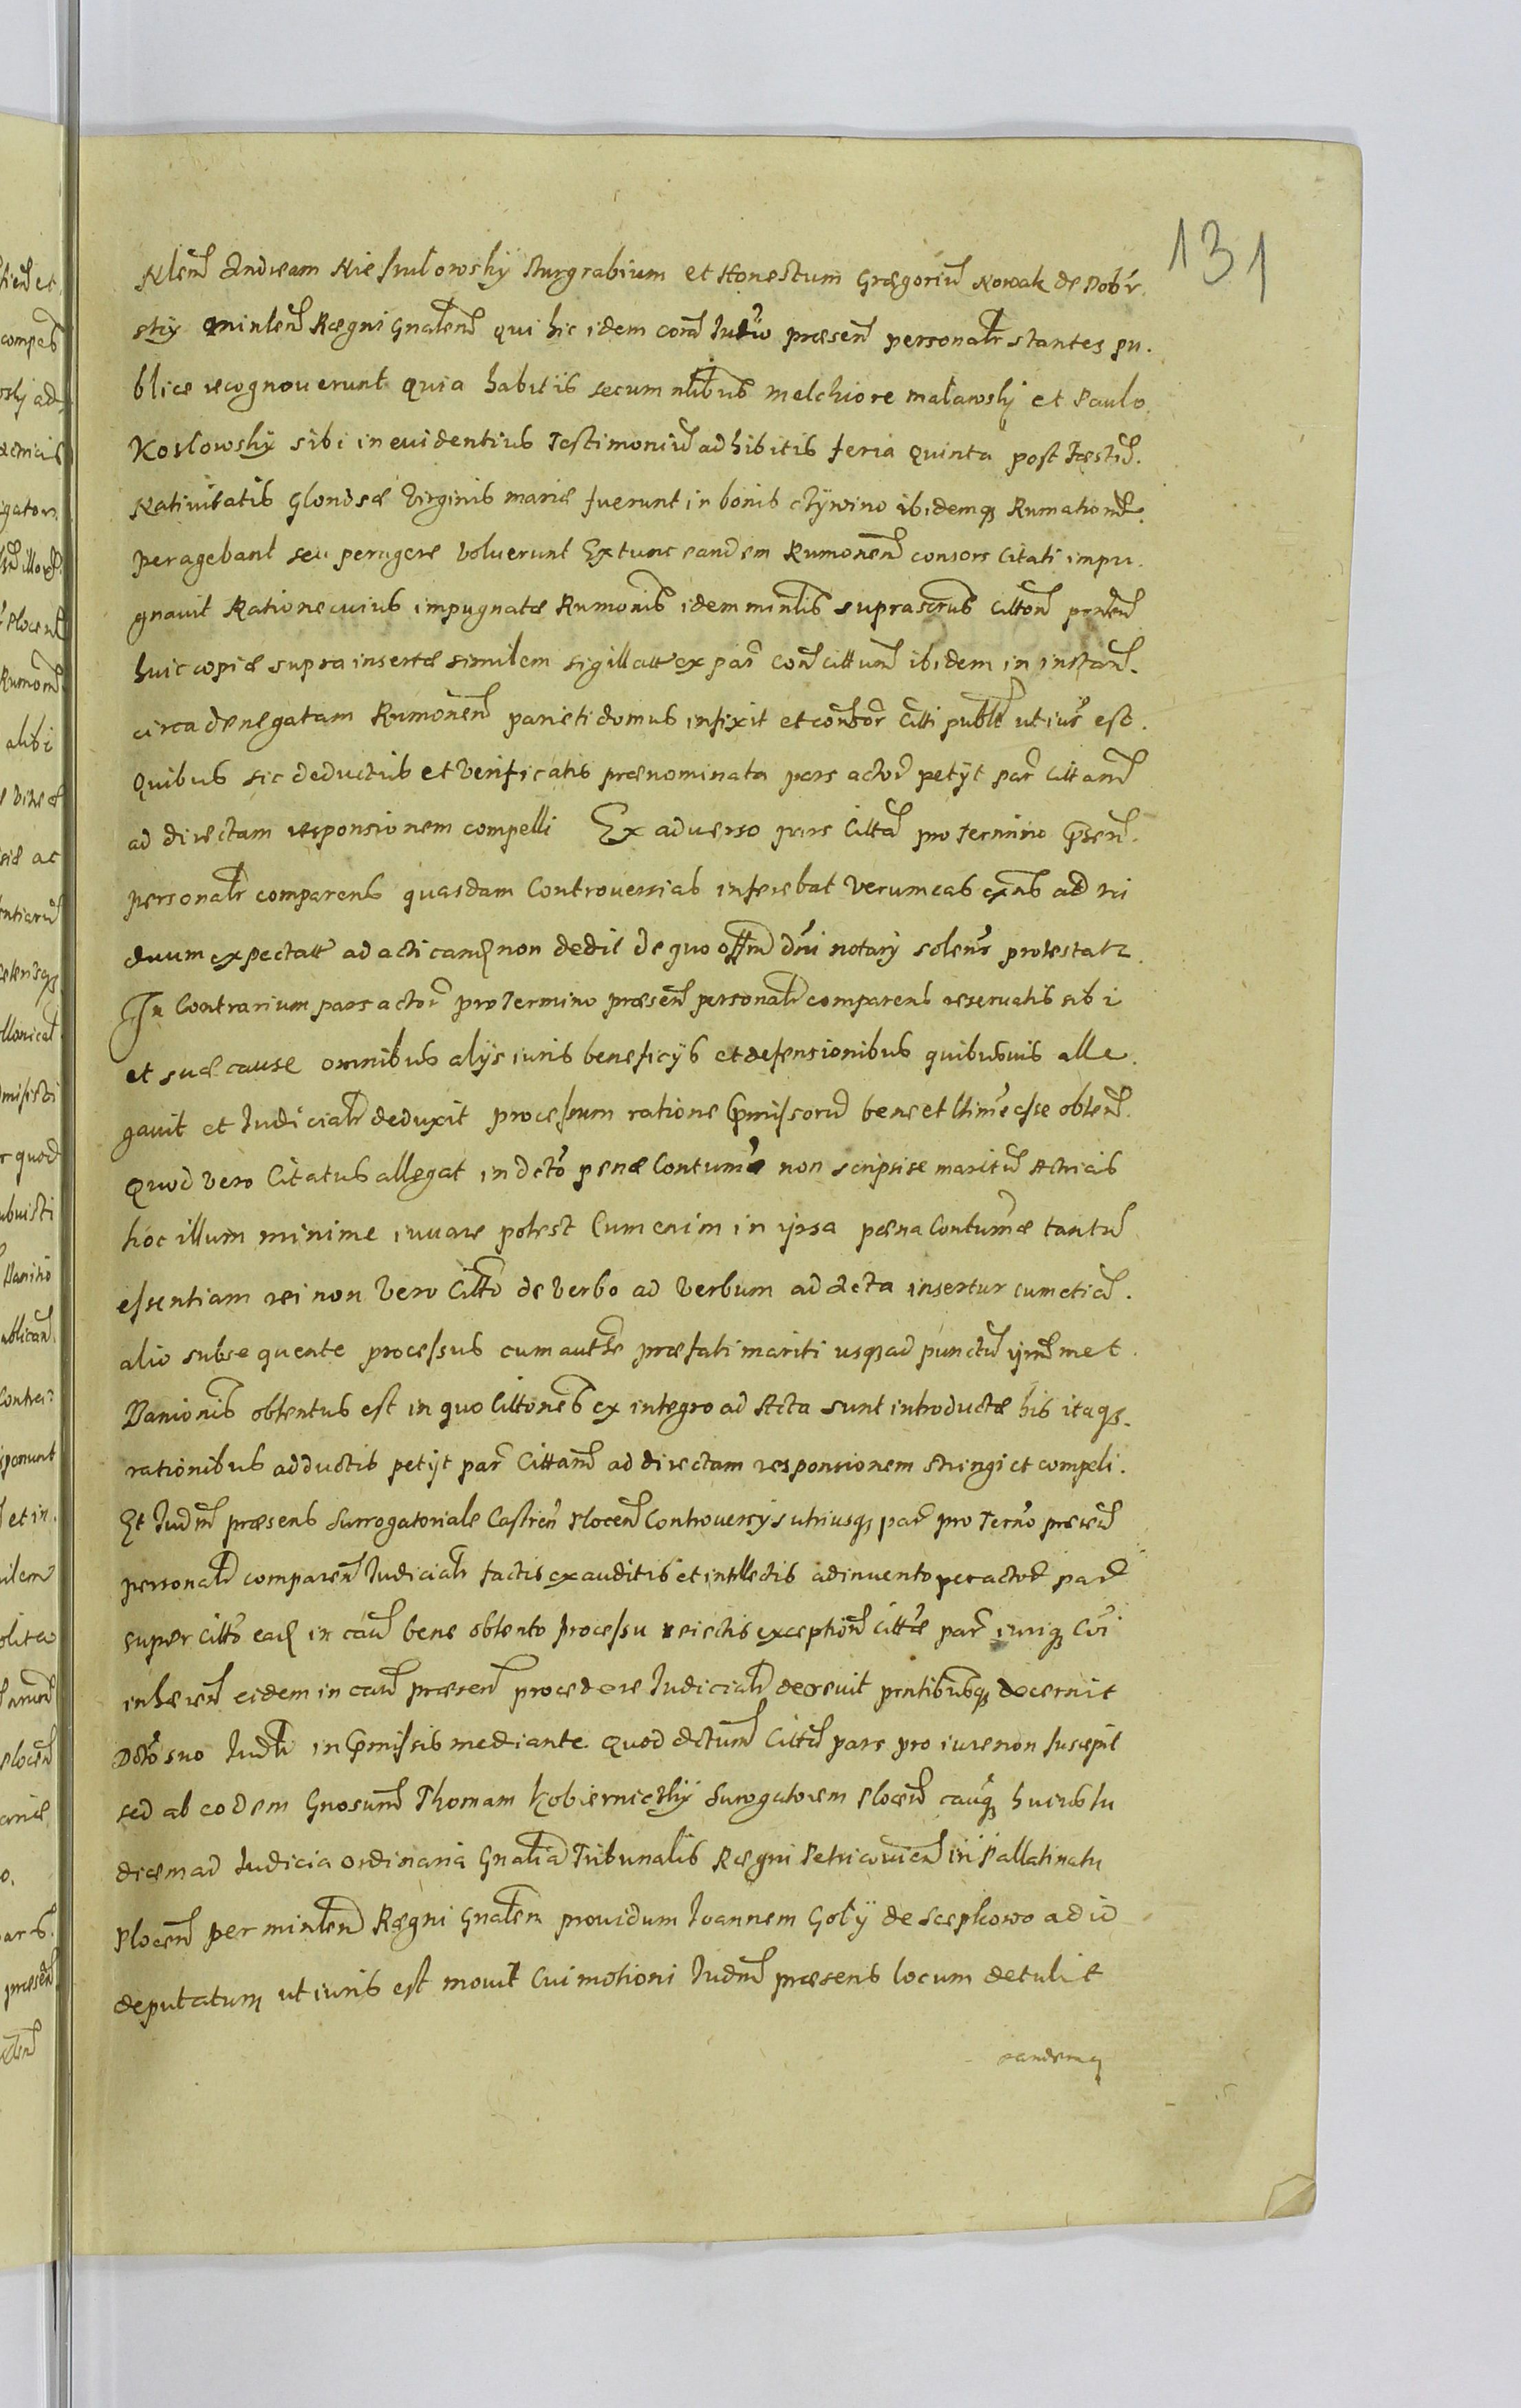 131
Nlem Andream Niesmłowsky Burgrabium et Honestum Grægoriu Nowak de Dobr.
sky minlem Rægni Gnalem qui hic idem cora Iudio præsen personalr stantes pu.
blice recognoverunt quia habitis secum nlibus Melchiore Maławsky et Paulo
Kosłowsky sibi in evidentius Testimoniu adhibitis feria quinta post Fæstu.
Nativitatis Glorisæ Virginis Mariæ fuerunt in bonis ibidemq Rumationem
peragebant seu peragere voluerunt Extunc eandem Rumonem consors Citati impu.
gnavit Ratione cuius impugnatæ Rumonis idem minlis suprascrus citton prnten
huic copiæ supra insertæ similem sigillatt ex par con cittum ibidem in instan.
circa denegatam Rumonem parieti domus infixit et citti publt ut iur est.
Quibus sic deductis et Verificatis prænominata pars actor petyt par Cittam
ad directam responsionem compelli Ex adverso pars Citta pro termino psen.
personalr comparens quasdam Controversias inferebat Verum eas ad
duum expectatt ad acticand non dedit de quo offm dni notary solenr protestatr.
In Contrarium pars actor pro Termino præsen personalr comparens reservatis sibi
et suæ cause omnibus alijs iuris beneficijs et defensionibus quibusvis alle.
gavit et Iudicialr deduxit processum ratione pmissoru bene et ltime esse obten.
Quod vero Citatus allegat in dcto penæ Contum non scripsise maritu Actricis
hoc illum minime iuvare potest Cum enim in ipsa pæna Contumæ tantu
essentiam rei non Vero Citto de Verbo ad Verbum ad acta insertur cum etia.
alio subsequente processus cum præfati mariti usq ad punctu met.
Banionis obtentus est in quo Cittones ex integro ad Acta sunt introductæ his itaq.
rationibus adductis petyt par Cittam ad directam responsionem stringi et compeli.
Et Iudm præsens Surrogatoriale Castren Plocen Controversys utriusq par pro Terno præsen
personalr comparen Iudicialr factis exauditis et intllectis adinvento per actor par
super citto ead in cau bene obtento processu reiectis exception cittæ par iuriq Cui
inhæren eidem in cau præsen procedere Iudicialr decrevit prntibusq decernit
Dcto suo Iudli in pmissis mediante quod dctum Citta pars pro iure non suscepit
sed ab eodem Gnosum Thomam Kobiernicky Surogatorem Plocen cauq huius Iu
dicem ad Iudicia ordinaria Gnalia Tribunalis Rægni Petricovien in Pallatinatu
Plocen per minlem Rægni Gnalem providum Ioannem Goły de Scepkowo ad id
deputatum ut iuris est movit Cui motioni Iudm præsens locum detulit
eandemq